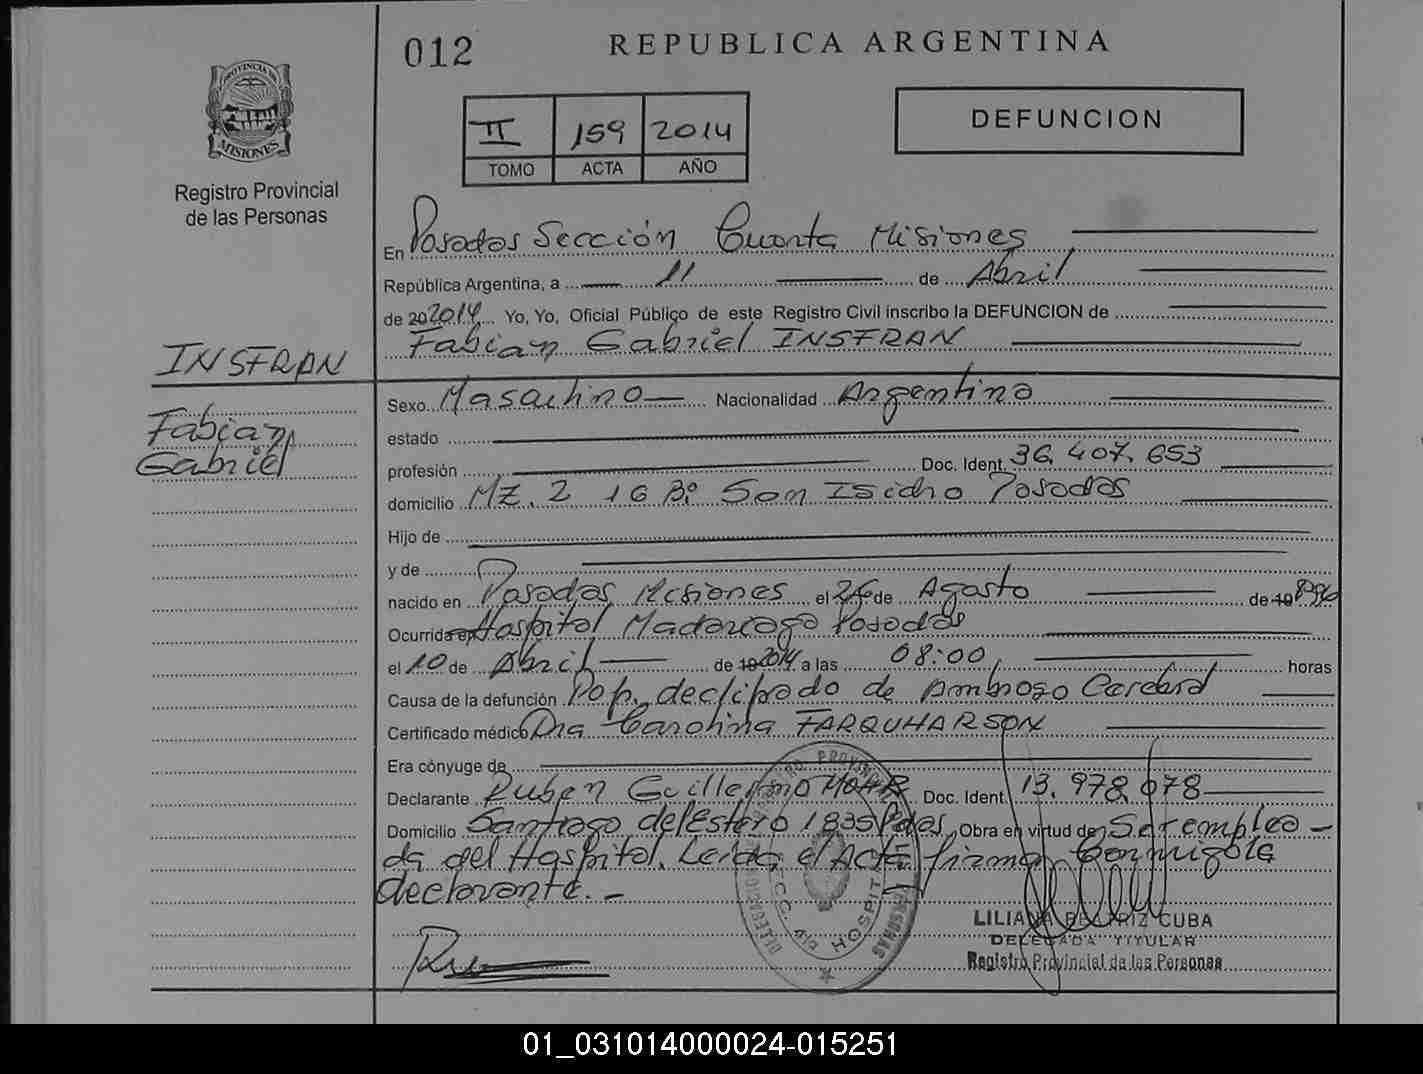 012
REPUBLICA ARGENTINA
PROVINCIA DE
MISIONES
Registro Provincial
de las Personas
II 159 2014
TOMO ACTA AÑO
DEFUNCION
En Posadas Sección Cuarta Misiones
República Argentina, a 11 de Abril
de 20 2014 Yo, Yo, Oficial Público de este Registro Civil inscribo la DEFUNCION de
Fabian Gabriel INSFRAN
INSFRAN
Fabian
Gabriel
Sexo Masculino Nacionalidad Argentina
estado
profesión Doc. Ident. 36.407.653
domicilio MZ. 2 16 Bº San Isidro Posadas
Hijo de
y de
nacido en Posadas Misiones el 26 de Agosto de 19
Ocurrida en Hospital Madariaga Posadas
el 10 de Abril de 19 2014 a las 08:00 horas
Causa de la defunción de
Certificado médico Dra Carolina FARQUHARSON
Era cónyuge de
Declarante Ruben Guillermo Doc. Ident. 13.978.078
Domicilio Santiago del Estero 1835 Pdas Obra en virtud de Ser emplea-
do del Hospital. Leida el Acta firma Conmigo la
declarante.-
REGISTRO PROVINCIAL DE LAS PERSONAS
DELEGACION
SECC. 4ta HOSPITAL
LILIANA BEATRIZ CUBA
DELEGADA TITULAR
Registro Provincial de las Personas
01_031014000024-015251